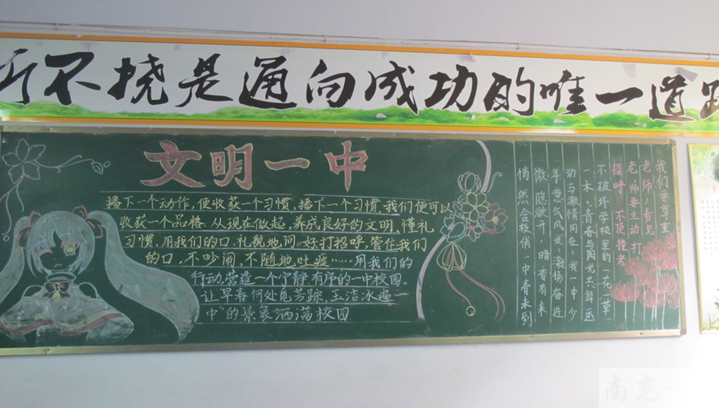 折不挠是通向成功的唯一道路
文明一中
播下一个动作,便收获一个习惯,播下一个习惯,我们便可以
收获一个品格,从现在做起,养成良好的文明,懂礼
习惯,用我们的口,礼貌地问好打招呼,管住我们
的口,不吵闹,不随地吐痰……用我们的
行动营造一个宁静有序的一中校园
让早春何处觅芳踪,玉洁冰
一中"的景象洒满校园
我们要尊重
老师,看见
老师要主动打
招呼,不顶撞老
不破坏学校里的一花一草
一木。青春与阳光共
的与激情同在,我一中少
年
微
悄然
南充一